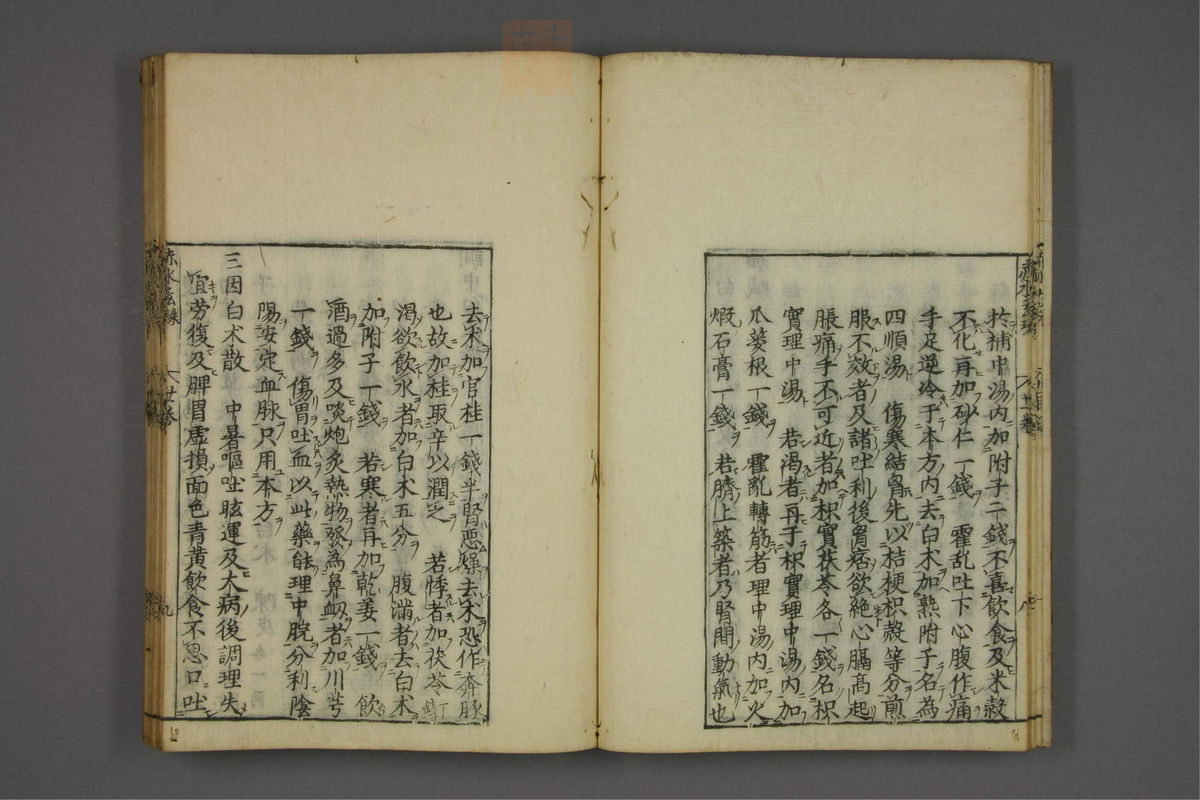 於補中湯内加附子二錢不喜飲食及米穀
不化再加砂仁一錢　霍乱吐下心腹作痛
手足逆冷于本方内去白朮加熟附子名為
四順湯　傷寒結胷先以桔梗枳殻等分煎
服不效者及諸吐利後胷痞欲絶心膈高起
脹痛手不可近者加枳實茯苓各一錢名枳
實理中湯　若渴者再于枳實理中湯内加
瓜蔞根一錢　霍亂轉筋者理中湯内加火
煅石膏一錢　若臍上築者乃腎間動氣也
去朮加官桂一錢半腎悪燥去朮恐作奔豚
也故加桂取辛以潤之　若悸者加茯苓一錢
渴欲飲水者加白朮五分　腹滿者去白朮
加附子一錢　若寒者再加乾姜一錢　飲
酒過多及啖炮炙熱物發為鼻衂者加川芎
一錢　傷胃吐血以此藥能理中脘分利陰
陽安定血脉只用本方
三因白朮散　中暑嘔吐眩運及大病後調理失
宜劳復及脾胃虛損面色青黄飲食不思口吐
赤水玄珠